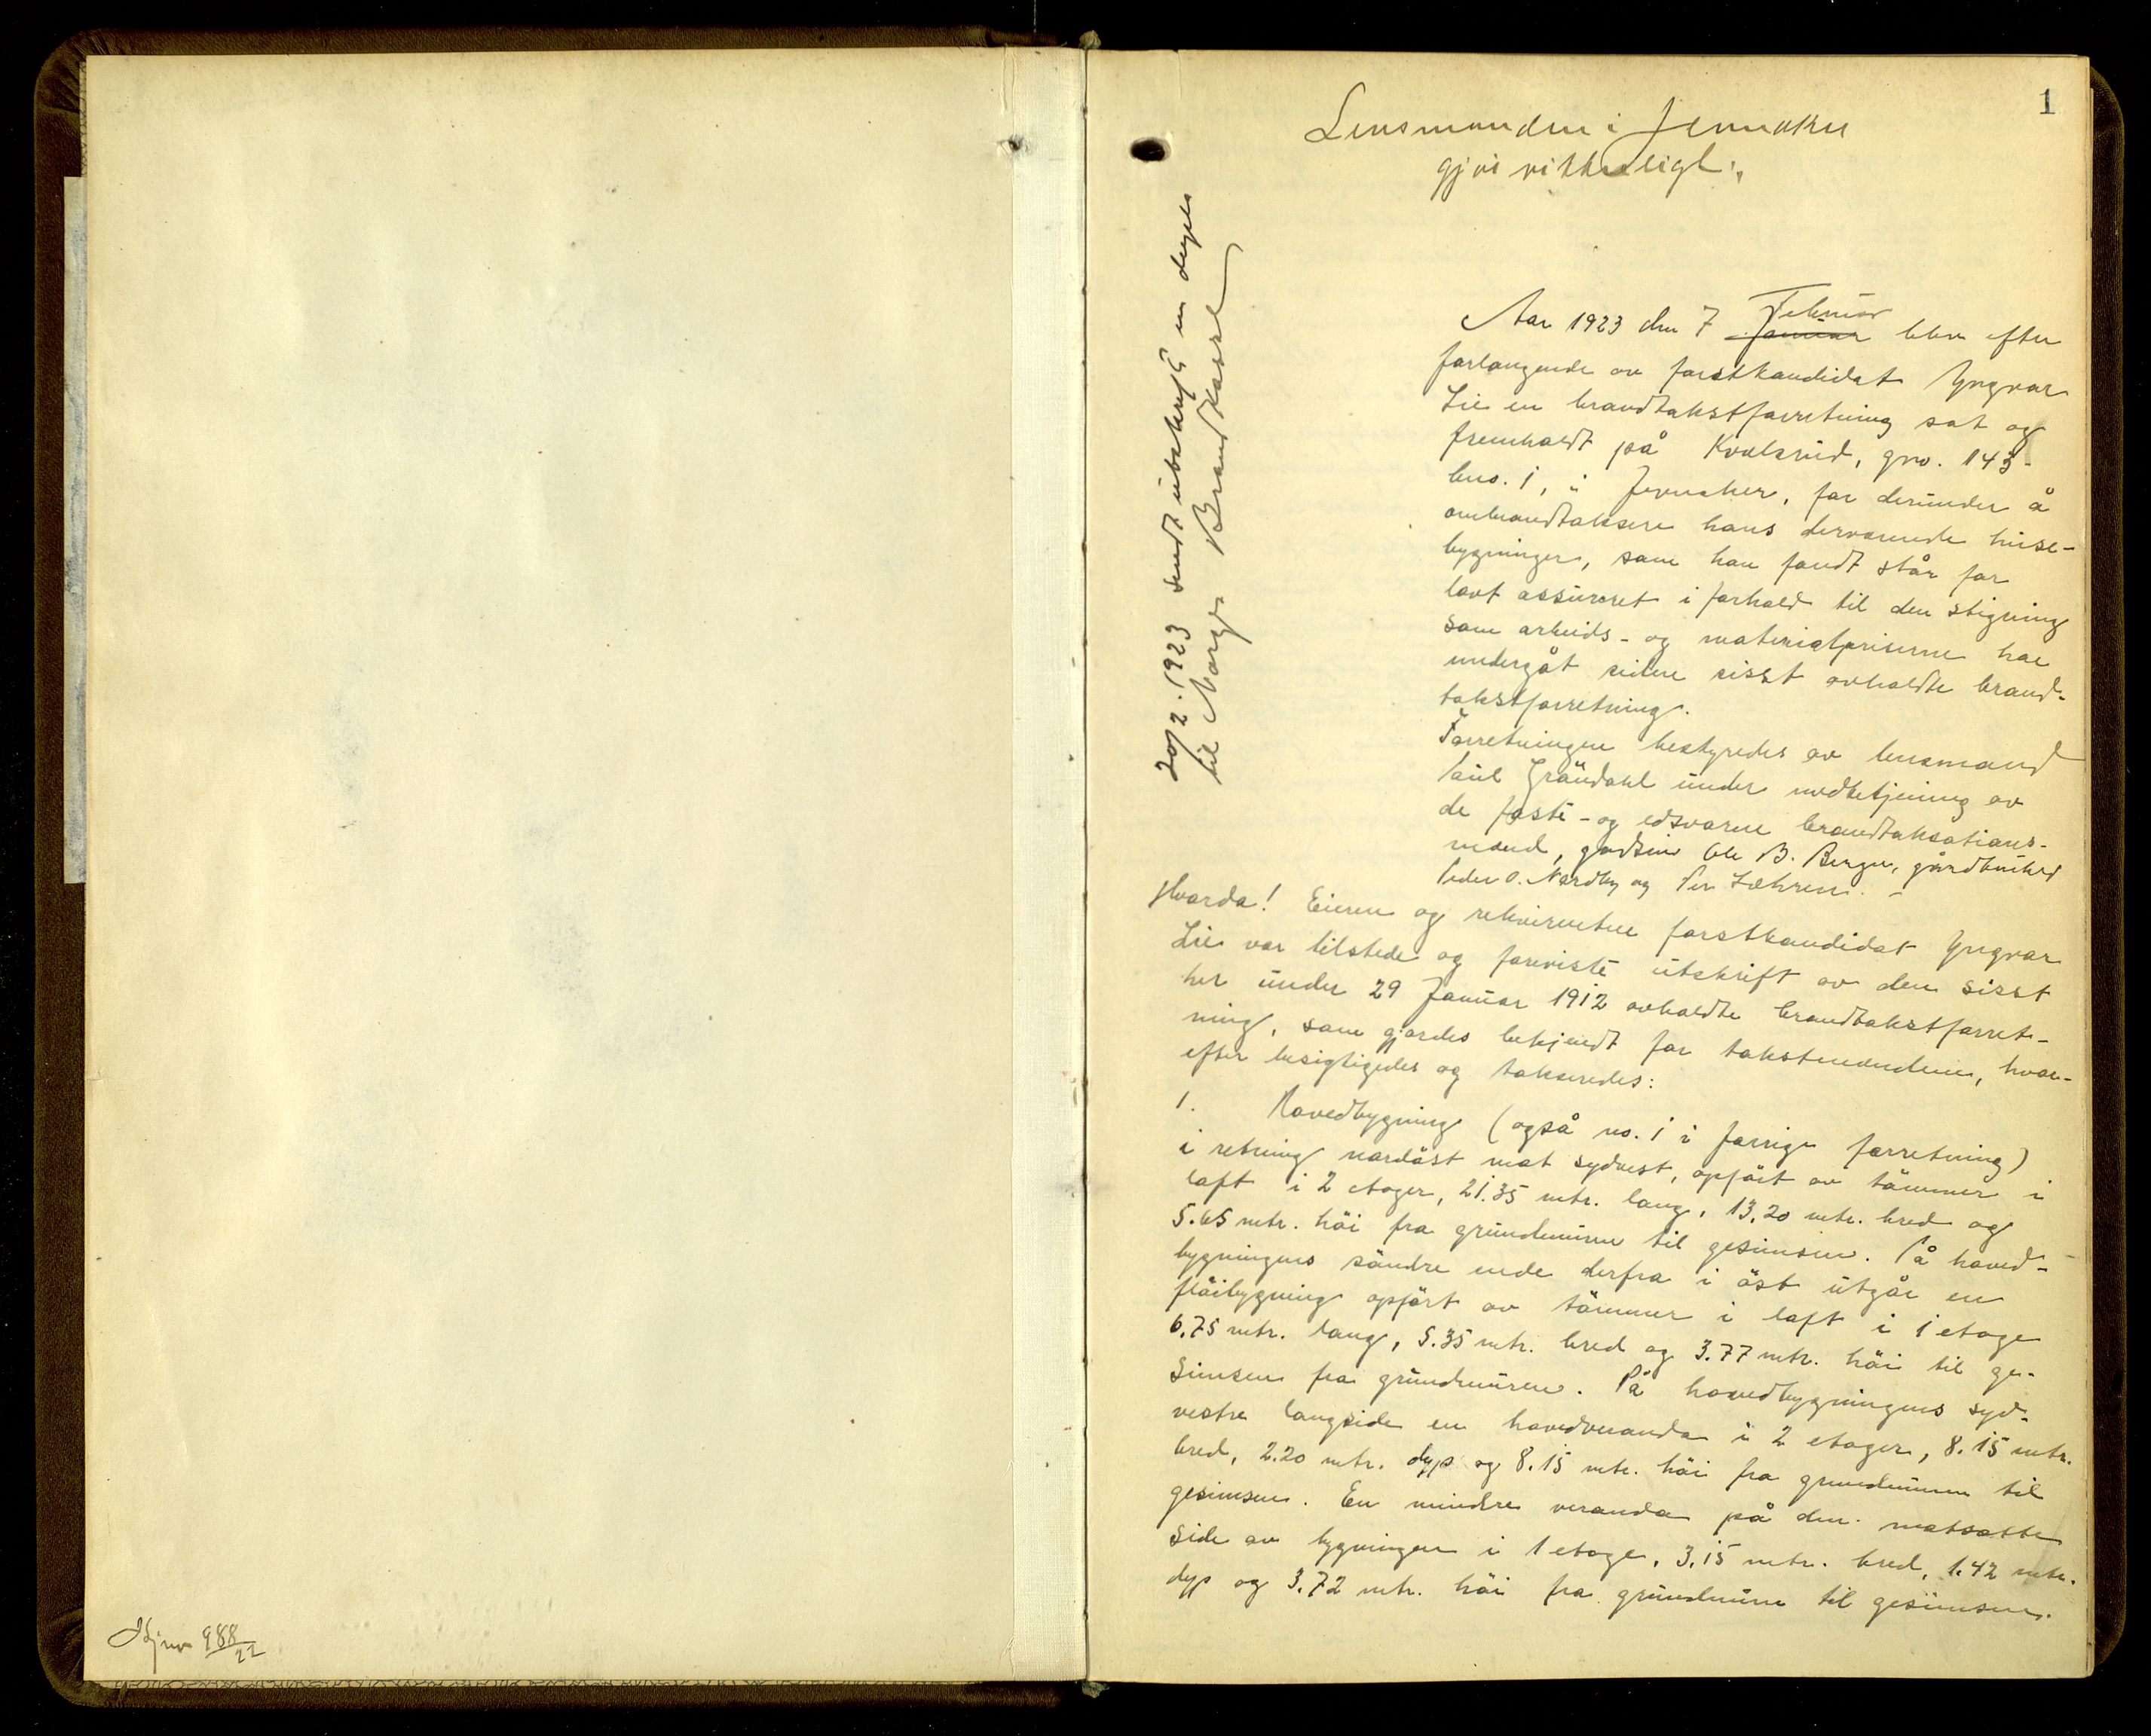 1
Lensmanden i Jevnaker
gjør vitterligt:
20/2. 1923 sendt utskrift en dupls
til Norges Brandkasse
Aar 1923 den 7 Februar
Januar blev efter
forlangende av forstkandidat Yngvar
Lie en brandtakstforretning sat og
fremholdt på Kvelsrud, gno. 143
bno. 1, i Jevnaker, for derunder å
ombrandtaksere hans derværende huse-
bygninger, som han fandt står for
lavt assureret i forhold til den stigning
som arbeids- og materialpriserne har
undergåt siden sisst avholdte brand-
takstforretning.
Forretningen bestyredes av lensmand
Paul Gröndahl under medbetjening av
de faste- og edsvorne brandtaksations-
mænd, gårdeier Ole B. Berger, gårdbruker
Peder O. Nordby og Per Løhren. -
Hvorda! Eieren og rekvirenten forstkandidat Yngvar
Lie var tilstede og foreviste utskrift av den sisst
her under 29 Januar 1912 avholdte brandtakstforret-
ning, som gjordes bekjendt for takstmændene, hvor-
efter besigtigedes og takseredes:
1. Hovedbygning (også no. 1 i forrige forretning)
i retning nordöst mot sydvest, opfört av tömmer i
laft i 2 etager, 21.35 mtr. lang, 13,20 mtr. bred og
5.65 mtr. höi fra grundmuren til gesimsen. På hoved-
bygningens söndre ende derfra i öst utgår en
flöibygning opfört av tömmer i laft i 1 etage
6,75 mtr. lang, 5.35 mtr. bred og 3.77 mtr. höi til ge-
simsen fra grundmuren. På hovedbygningens syd-
vestre langside en hovedveranda i 2 etager, 8.15 mtr.
bred, 2.20 mtr. dyp og 8.15 mtr. höi fra grundmuren til
gesimsen. En mindre veranda på den motsatte
side av bygningen i 1 etage, 3,15 mtr. bred, 1.42 mtr.
dyp og 3.72 mtr. höi fra grundmuren til gesimsen.
988/22